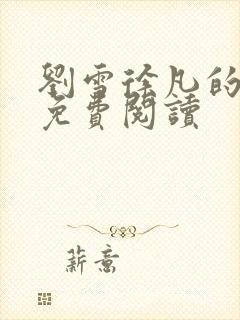 劉雪徐凡的
免費閱讀
薪意